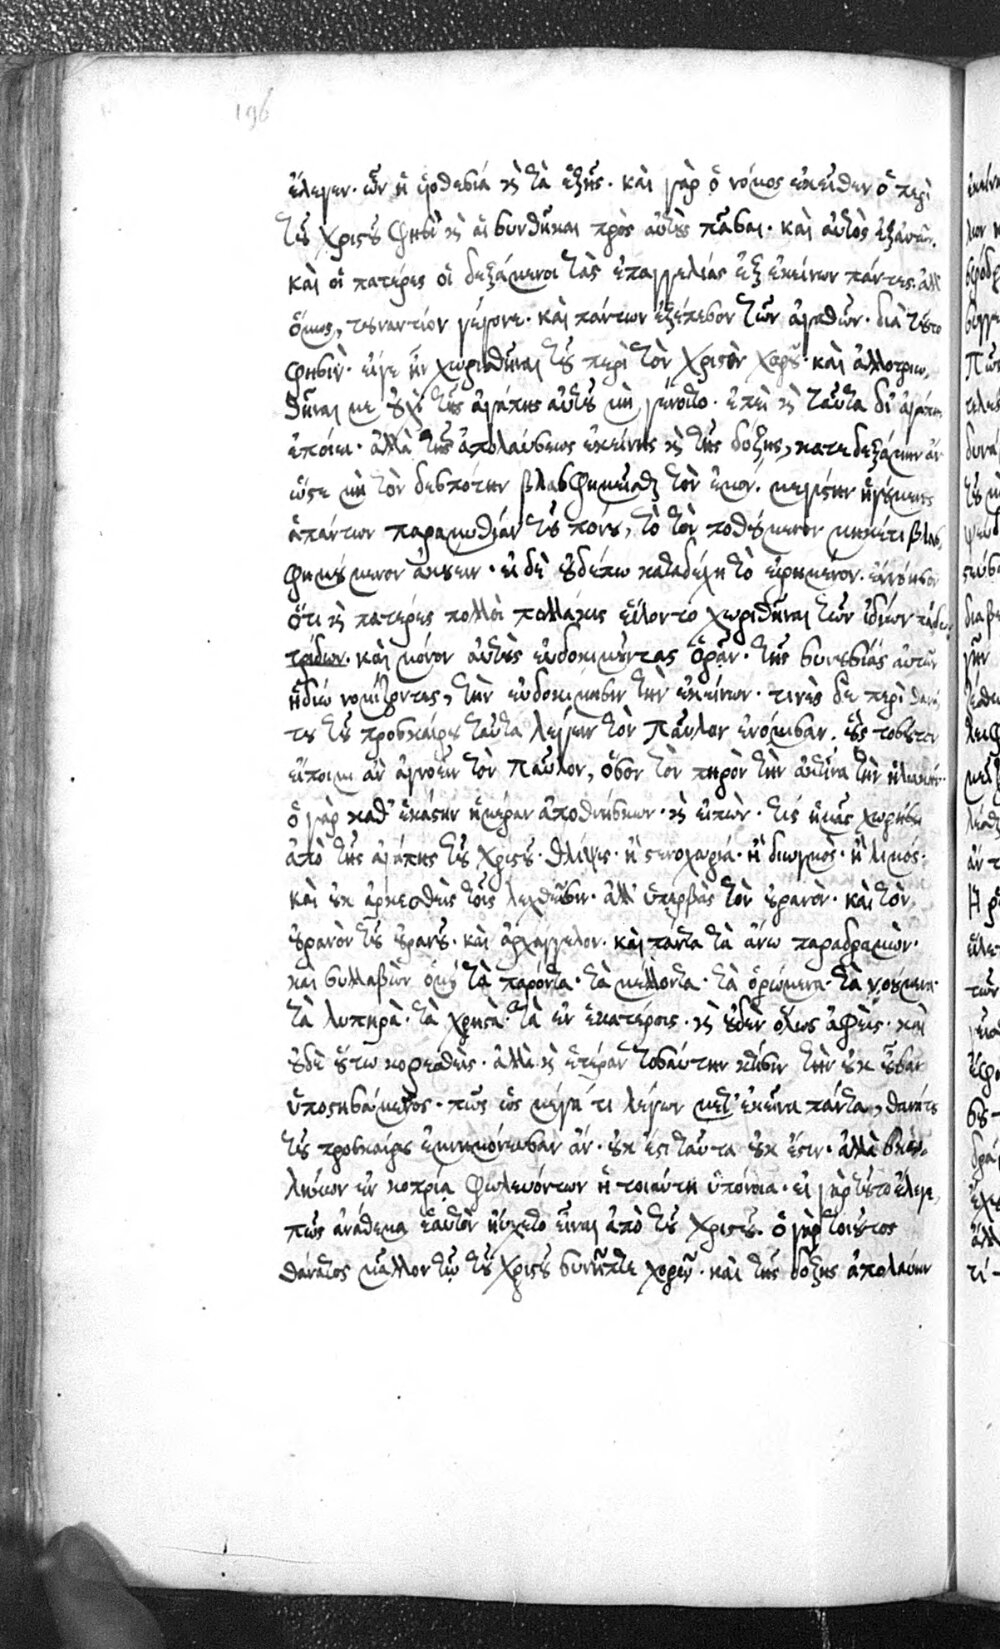 196
ἔλεγεν· ὧν ἡ υἱοθεσία κὶ τὰ ἑξῆς· καὶ γὰρ ὁ νόμος ἐκεῖθεν ὁ περὶ
τοῦ χριστοῦ φησὶ κὶ αἱ συνθῆκαι πρὸς αὐτοὺς πᾶσαι· καὶ αὐτὸς ἐξ αὐτῶν·
καὶ οἱ πατέρες οἱ δεξάμενοι τὰς ἐπαγγελίας ἐξ ἐκείνων πάντες· ἀλλ'
ὅμως, τουναντίον γέγονε· καὶ πάντων ἐξέπεσον τῶν ἀγαθῶν· διὰ τοῦτο
φησὶν· εἵγε ἦν χωρισθῆναι τοῦ περὶ τὸν χριστὸν χοροῦ· καὶ ἀλλοτριω
θῆναι με οὐχὶ τῆς ἀγάπης αὐτοῦ μὴ γένοιτο· ἐπεὶ κὶ ταῦτα δι' ἀγάπην
ἐποίει· ἀλλὰ τῆς ἀπολαύσεως ἐκείνης κὶ τῆς δόξης, κατεδεξάμην ἂν
ὥστε μὴ τὸν δεσπότην βλασφημεῖσθαι τὸν ἐμόν· μεγίστην ἡγούμενος
ἁπάντων παραμυθίαν τοῦ πόνου, τὸ τὸν ποθούμενον μηκέτι βλασ
φημούμενον ἀκούειν· εἰ δὲ οὐδέπω κατάδηλη τὸ εἰρημένον· ἐννόησον
ὅτι κὶ πατέρες πολλοὶ πολλάκις εἵλοντο χωρισθῆναι τῶν ἰδίων παίδων
τρίδων· καὶ μόνον αὐτοὺς εὐδοκιμοῦντας ὁρᾶν· τῆς συνουσίας αὐτῶν
ἡδίω νομίζοντες, τὴν εὐδοκίμησιν τὴν ἐκείνων· τινὲς δὲ περὶ θανά
του τοῦ προσκαίρου ταῦτα λέγειν τὸν Παῦλον ἐνόμισαν· οὓς τοσοῦτον
εἴποιμι ἂν ἀγνοεῖν τὸν Παῦλον, ὅσον τὸν πηρὸν τὴν ἀκτῖνα τὴν ἡλιακήν·
ὁ γὰρ καθ' ἑκάστην ἡμέραν ἀποθνήσκων· κὶ εἰπὼν· τίς ἡμᾶς χωρίσει
ἀπὸ τῆς ἀγάπης τοῦ χριστοῦ· θλίψις· ἢ στενοχωρία· ἢ διωγμὸς· ἢ λιμός·
καὶ οὐκ ἀρκεσθεὶς τοῖς λεχθεῖσιν· ἀλλ' ὑπερβὰς τὸν οὐρανὸν· καὶ τὸν
οὐρανὸν τοῦ οὐρανοῦ· καὶ ἀρχαγγέλου· καὶ πάντα τὰ ἄνω παραδραμὼν·
καὶ συλλαβὼν ὁμοῦ τὰ παρόντα· τὰ μέλλοντα· τὰ ὁρώμενα· τὰ νοούμενα·
τὰ λυπηρὰ· τὰ χρηστὰ· τὰ ἐν ἑκατέροις· κὶ οὐδὲν ὅλως ἀφεὶς· καὶ
οὐδὲ οὕτω κορεσθεὶς· ἀλλὰ κὶ ἑτέραν τοσαύτην κτίσιν τὴν οὐκ οὖσαν
ὑποστησάμενος· πῶς ὡς μέγα τι λέγων μετ' ἐκεῖνα πάντα, θανάτου
τοῦ προσκαίρου ἐμνημόνευσεν ἄν· οὐκ ἔστι ταῦτα οὐκ ἔστιν· ἀλλὰ σκω
λήκων ἐν κοπρία φωλευόντων ἡ τοιαύτη ὑπόνοια· εἰ γὰρ τοῦτο ἔλεγε,
πῶς ἀνάθεμα ἑαυτὸν ηὔχετο εἶναι ἀπὸ τοῦ χριστοῦ· ὁ γὰρ τοιοῦτος
θάνατος μᾶλλον τῷ τοῦ χριστοῦ συνῆπτε χορῷ· καὶ τῆς δόξης ἀπολαύειν